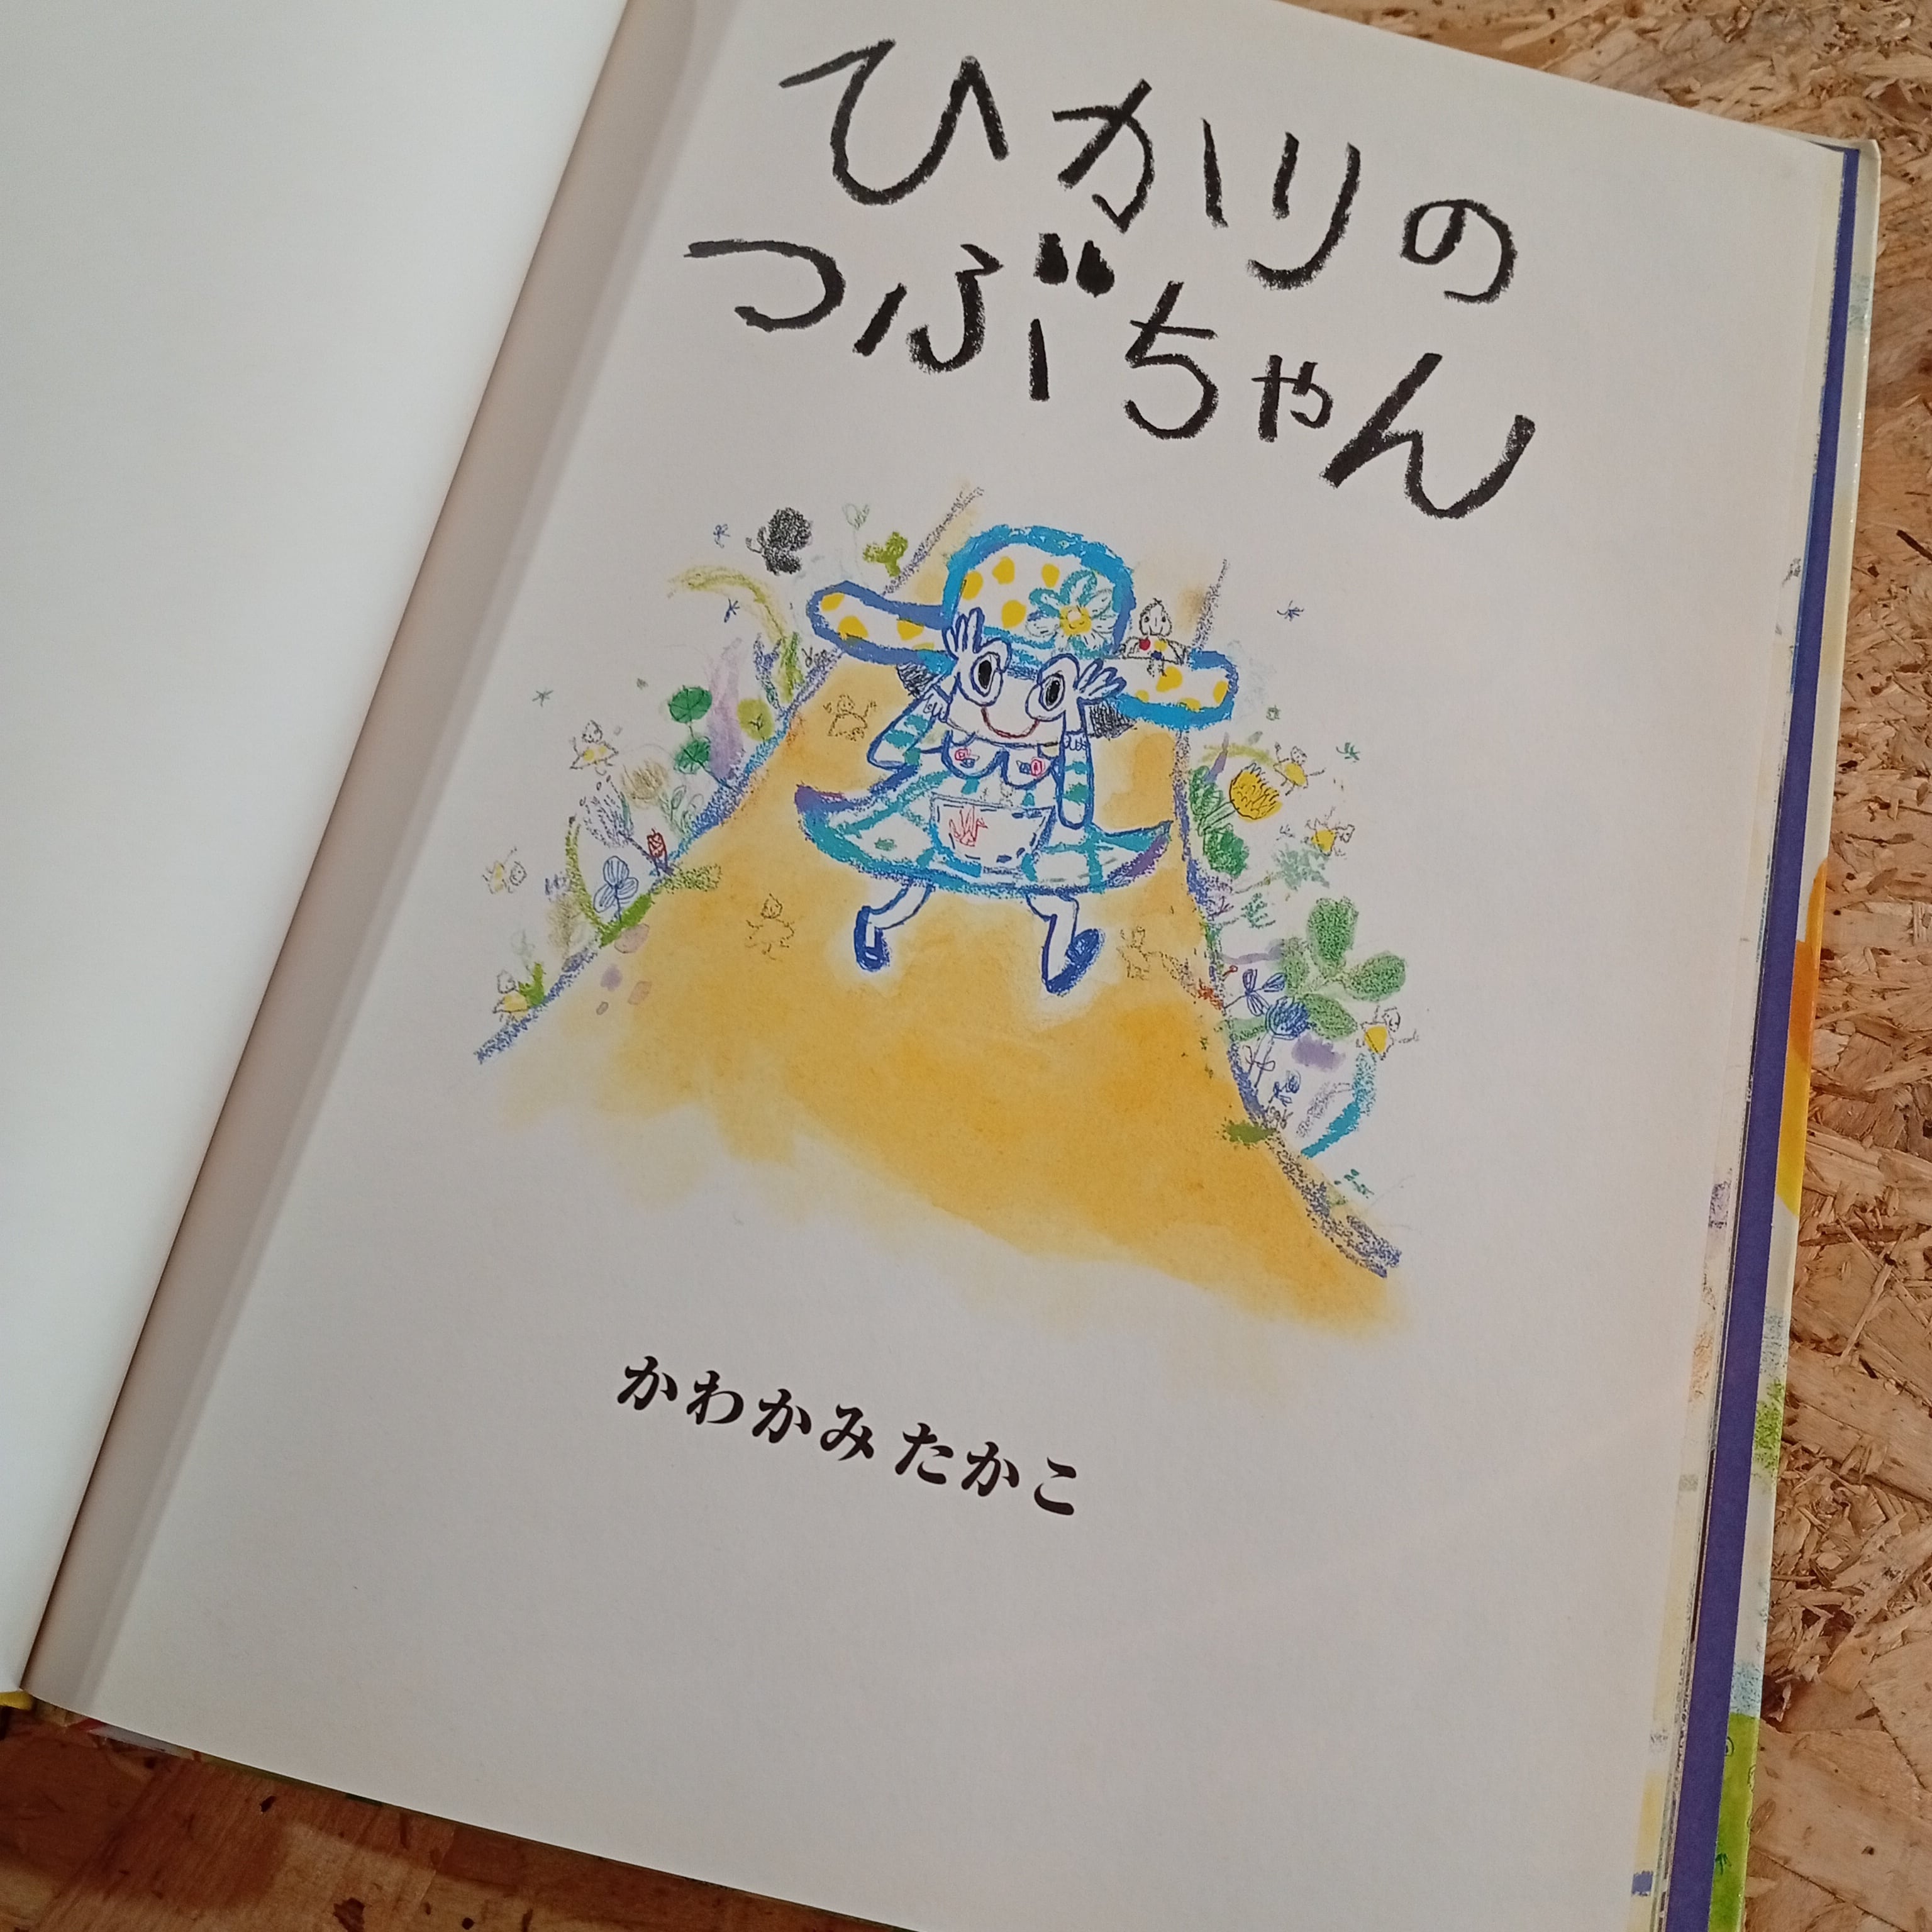 ひかりの
つぶちゃん
かわかみ たかこ